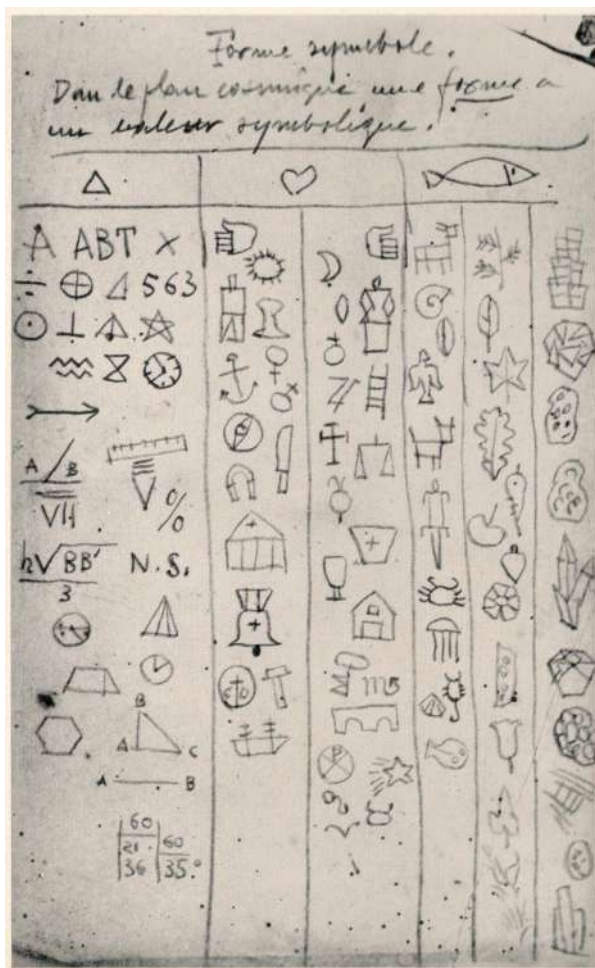 Forme symbole.
Dan le plan cosmique une forme a
un valeur symbolique.
A ABT X
÷ 563
A / B
VII
%
h√BB' N.S.
3
B
A C
A B
60
21 60
36 35.°